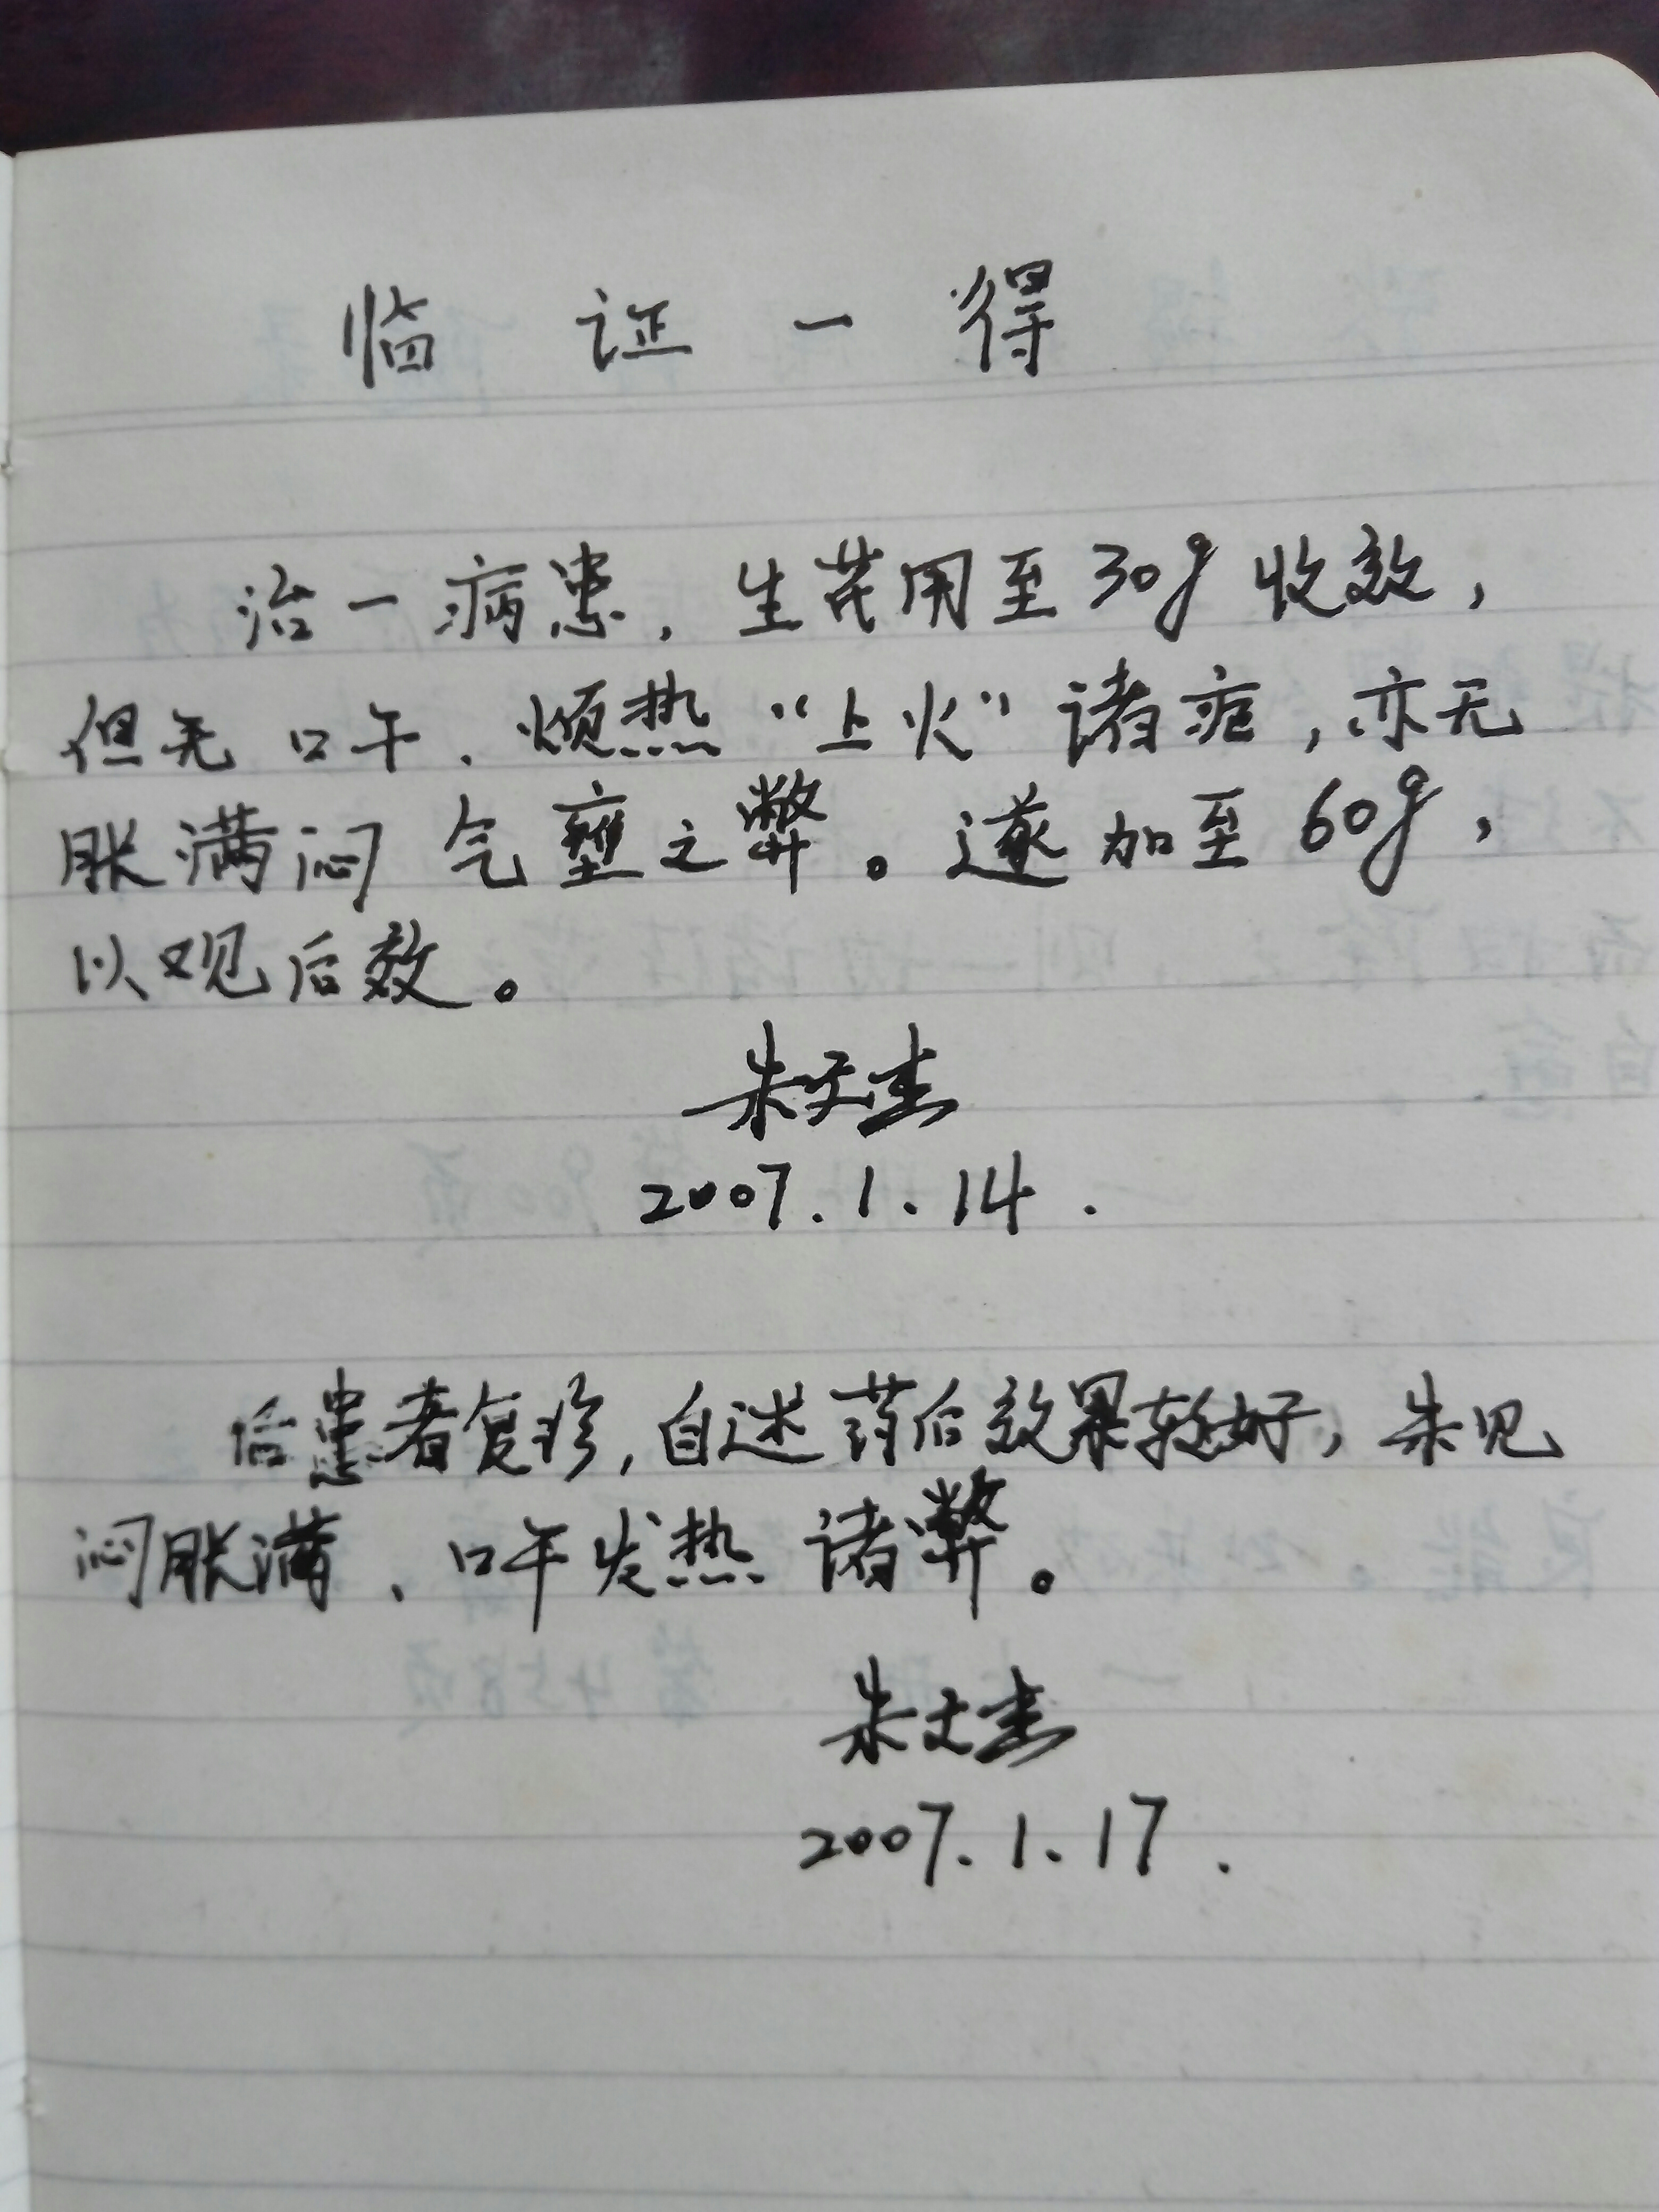 临证一得
治一病患，生芪用至30g收效，
但无口干、烦热“上火”诸症，亦无
胀满闷气壅之弊。遂加至60g，
以观后效。
朱文杰
2007.1.14.
后患者复诊，自述药后效果较好，未见
闷胀满、口干发热诸弊。
朱文杰
2007.1.17.